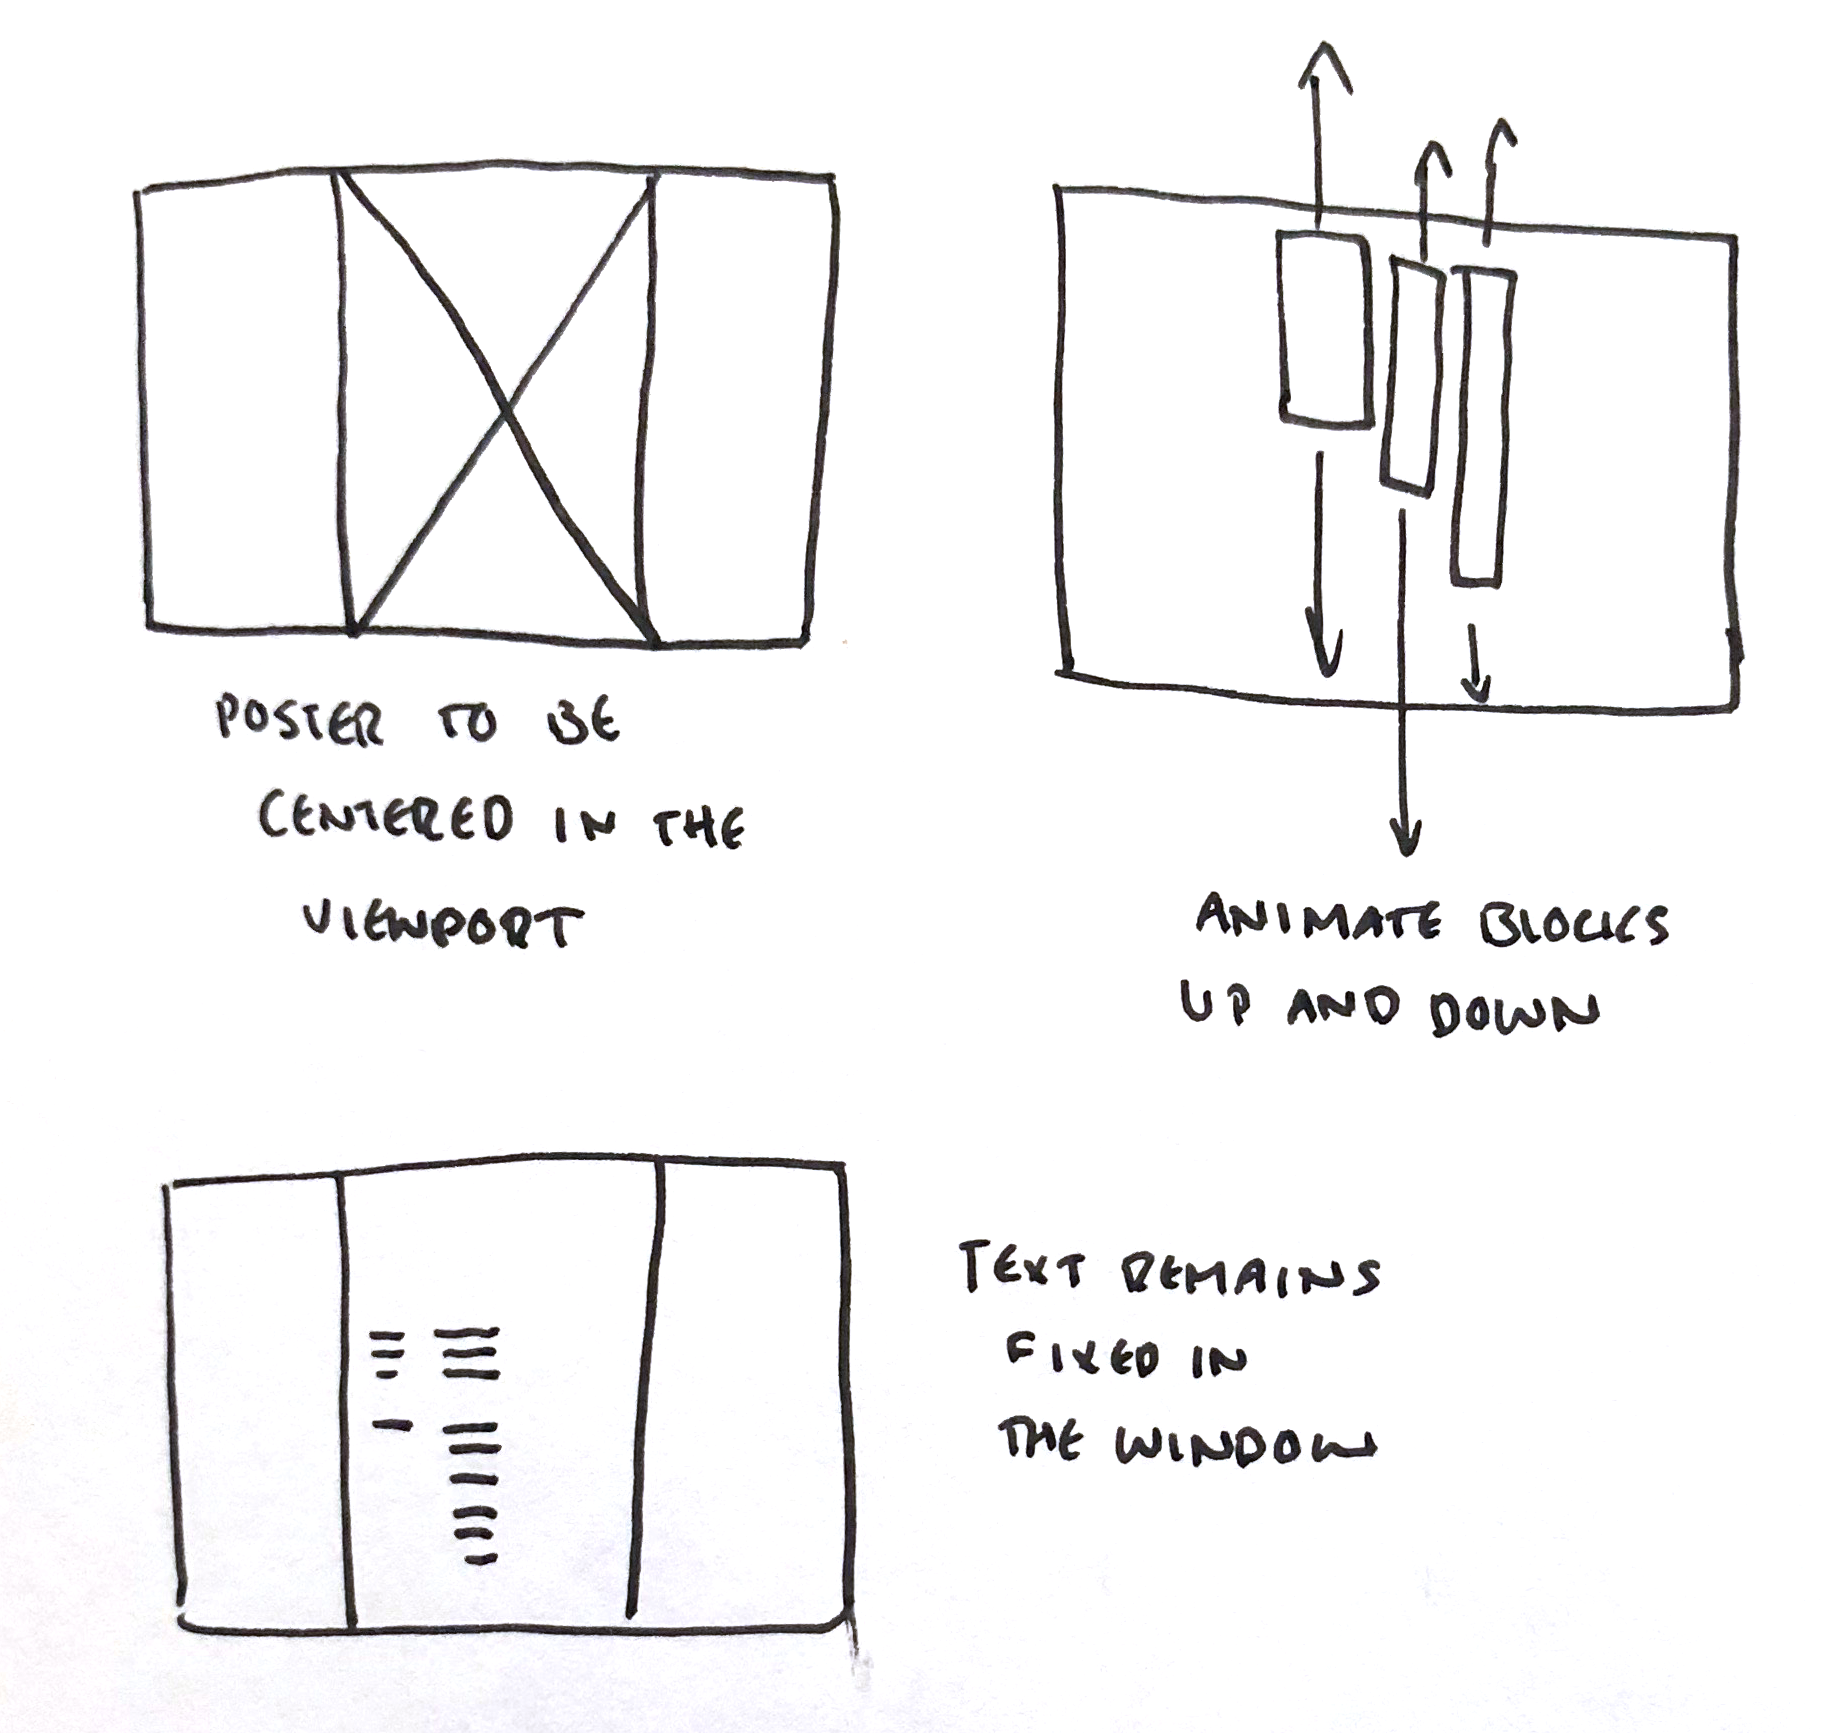 POSTER TO BE
CENTERED IN THE
VIEWPORT
ANIMATE BLOCKS
UP AND DOWN
TEXT REMAINS
FIXED IN
THE WINDOW